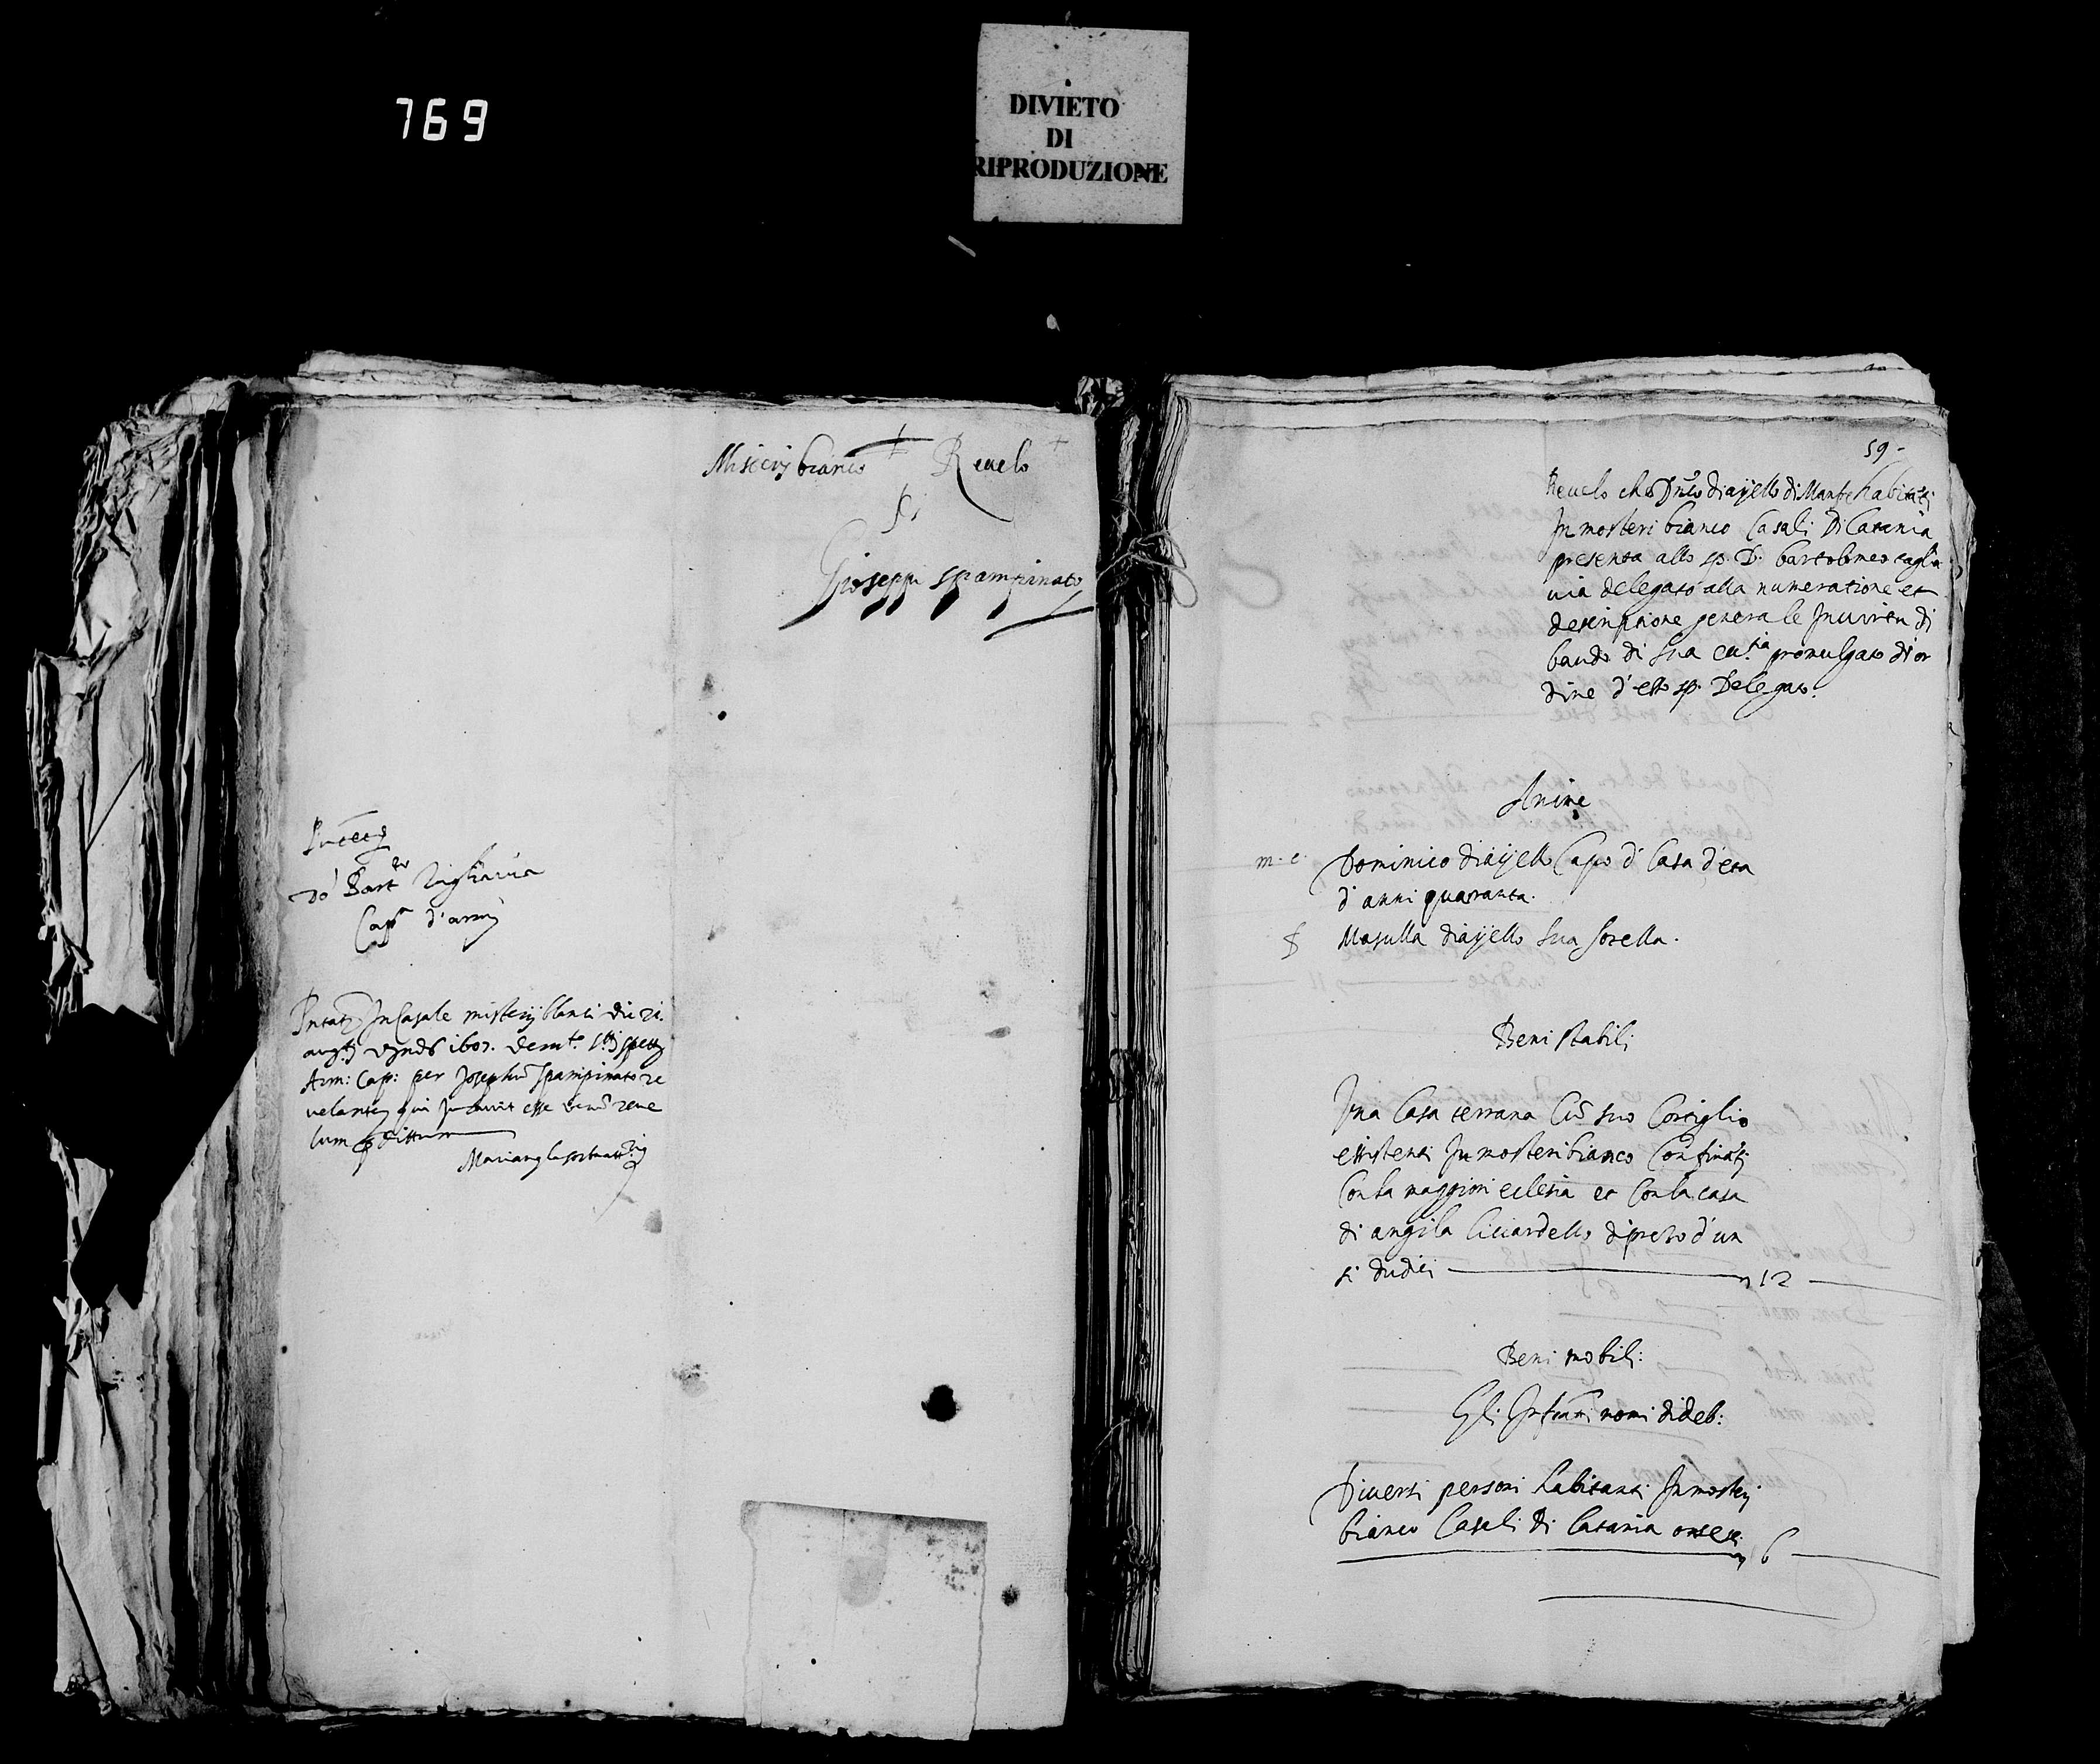 769
DIVIETO
DI
RIPRODUZIONE
Misterij bianco Revelo
di
Gioseppi spampinato
Don Bart.eo Tagliavia
Cap.n d'armi
Pntat. In Casale misterij blanci die 21.
aug.ti 1607. de m.to
Arm: Cap: per Josephu spampinato re
velantem qui Juravit esse veru reve
lum
59
Revelo che Dnico diajello di Manf. habitati
In mosteri bianco Casali Di Catania
presenta allo sp. D. bartolomeo tagla
via delegato alla numeratione et
descriptione generale Invirtu di
bando di sua ecc.tia promulgato di or
dine d'esso sp. Delegato.
Anime
m. c. Dominico diajello Capo di Casa d'eta
d'anni quaranta.
f Masulla diajello sua sorella.
Beni stabili
Una Casa terrana Cu suo Cortiglio
existenti In mosteribianco Confinati
Con la maggiori eclesia et Con la casa
di angila licciardello di prezo d'un
zi dudici 12
Beni mobili:
Gli Infrati nomi di deb:
Diversi persori habitanti In mosterj
bianco Casali di Catania onze sei 6